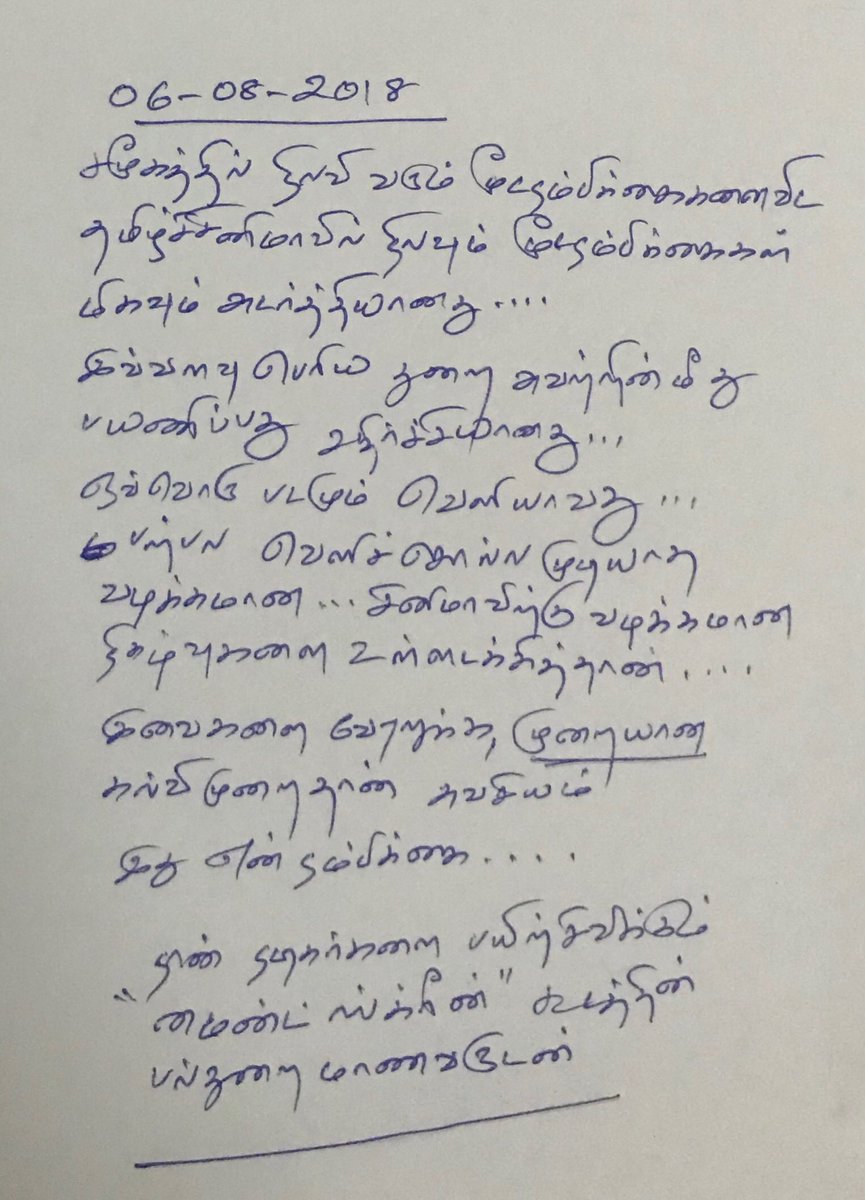 06-08-2018
சமூகத்தில் நிலவி வரும் மூடநம்பிக்கைகளைவிட
தமிழ்ச்சினிமாவில் நிலவும் மூடநம்பிக்கைகள்
மிகவும் அடர்த்தியானது....
இவ்வளவு பெரிய துறை அவற்றின் மீது
பயணிப்பது அதிர்ச்சியானது...
ஒவ்வொரு படமும் வெளியாவது...
பற்பல வெளிச்சொல்ல முடியாத
வழக்கமான... சினிமாவிற்கு வழக்கமான
நிகழ்வுகளை உள்ளடக்கித்தான்....
இவைகளை வேரறுக்க, முறையான
கல்விமுறைதான் அவசியம்
இது என் நம்பிக்கை....
நான் நடிகர்களை பயிற்சிவிக்கும்
"மைண்ட் ஸ்க்ரீன்" கூடத்தின்
பல்துறை மாணவருடன்